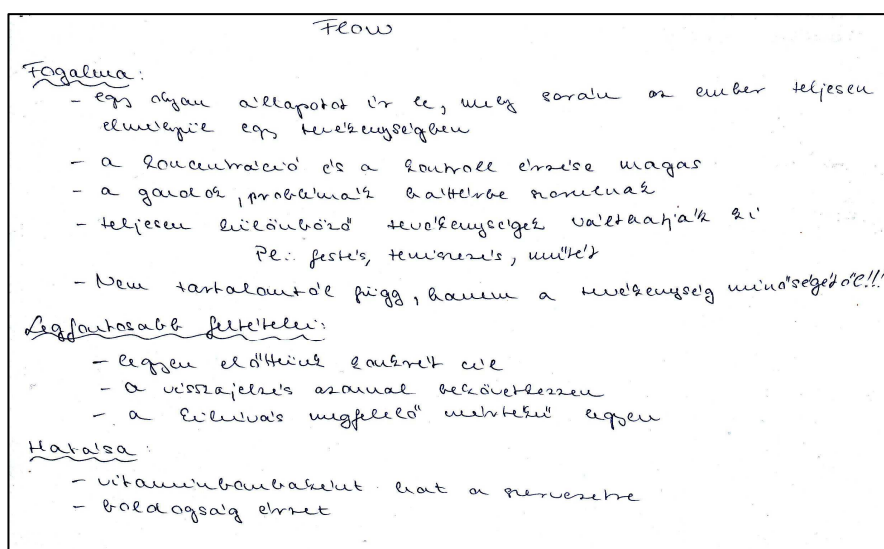 Flow
Fogalma:
- egy olyan állapotot ír le, mely során az ember teljesen
elmélyül egy tevékenységben
- a koncentráció és a kontroll érzése magas
- a gondok, problémák háttérbe szorulnak
- teljesen különböző tevékenységek válthatják ki
Pl.: festés, teniszezés, műtét
- Nem tartalomtól függ, hanem a tevékenység minőségétől!!!
Legfontosabb feltételei:
- legyen előttünk konkrét cél
- a visszajelzés azonnal bekövetkezzen
- a kihívás megfelelő mértékű legyen
Hatása:
- vitaminbombaként hat a szervezetre
- boldogság érzet